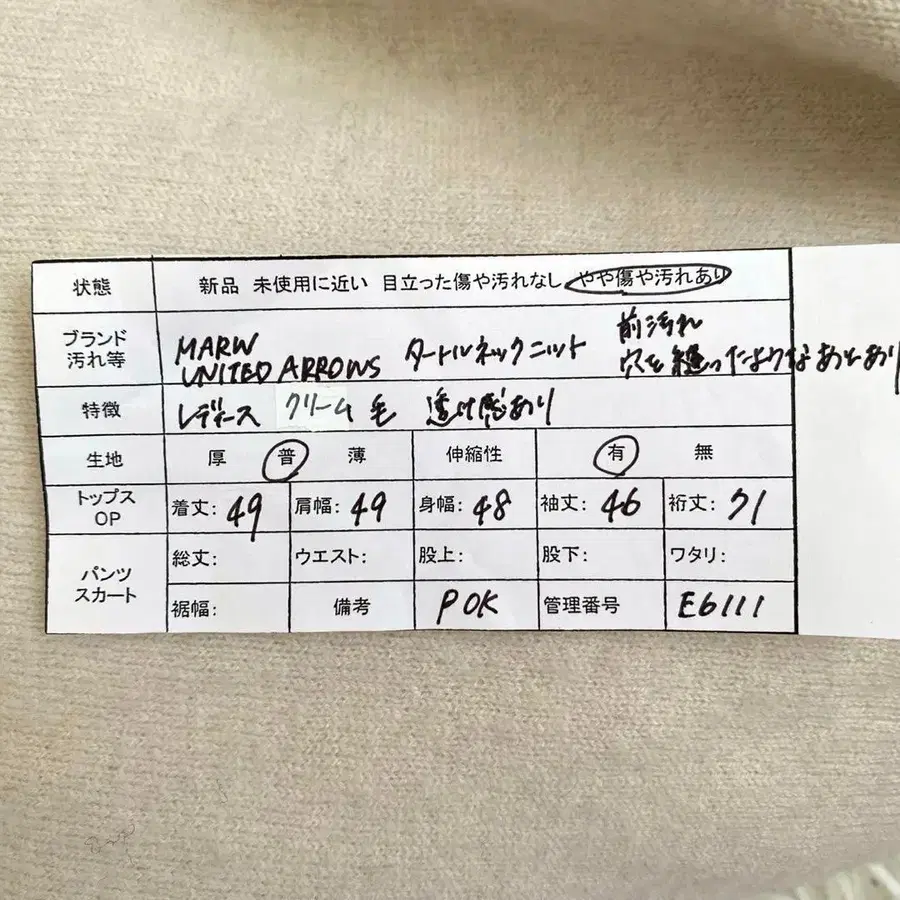 状態 新品 未使用に近い 目立った傷や汚れなし やや傷や汚れあり
ブランド
汚れ等
MARW
UNITED ARROWS タートルネックニット
前汚れ
穴を縫ったようなあとあり
特徴 レディース クリーム 毛 透け感あり
生地 厚 普 薄 伸縮性 有 無
トップス
OP
着丈: 49 肩幅: 49 身幅: 48 袖丈: 46 裄丈: 71
パンツ
スカート
総丈: ウエスト: 股上: 股下: ワタリ:
裾幅: 備考 P OK 管理番号 E6111